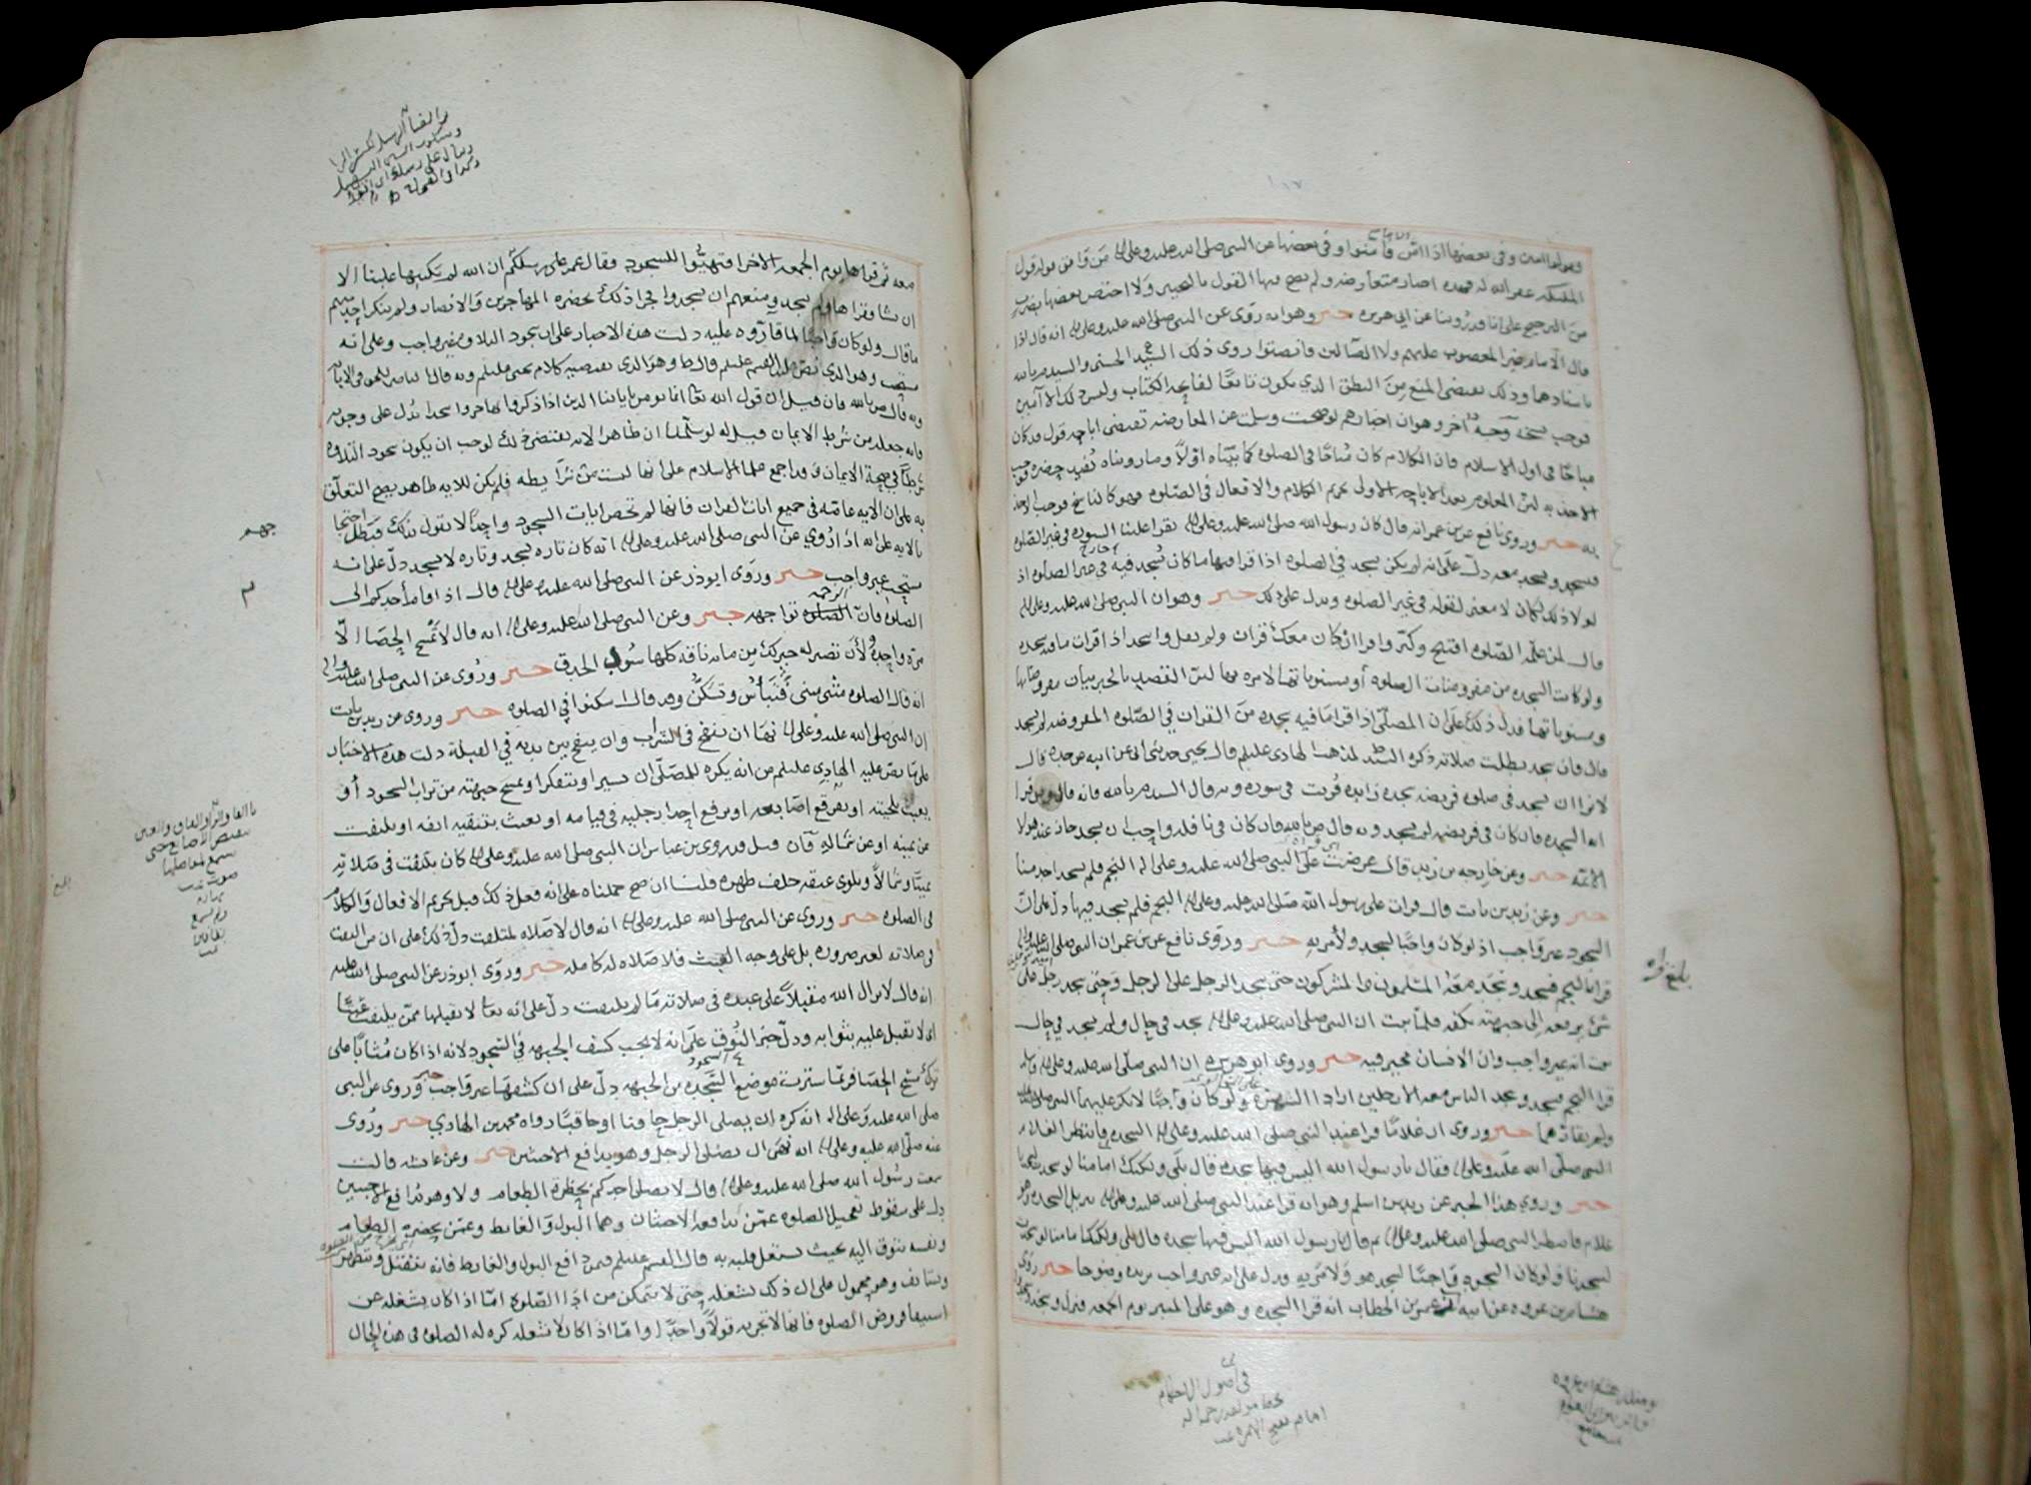 وقولوا آمين وفي بعضها اذا امّن فأمنوا وفي بعضها عن النبي صلى الله عليه وعلى اله من وافق قوله قول
الملائكة غفر الله له فهذه اخبار متعارضه ولم يصح فيها القول بالتخيير ولا اختص بعضها بضرب
من الترجيح على انا قد روينا عن ابي هريره خبر وهو انه روى عن النبي صلى الله عليه وعلى اله انه قال اذا
قال الامام غير المغضوب عليهم ولا الضالين فانصتوا روى ذلك السيد الحسني والسيد م بالله
باسنادهما وذلك يقتضي المنع من النطق الذي يكون تابعًا لفاتحة الكتاب وليس ذلك الا آمين
فوجب نسخه وجه آخر وهو ان اخبارهم لو صحت وسلمت عن المعارضه تقتضي اباحه قول قد كان
مباحًا في اول الاسلام فان الكلام كان مباحًا في الصلوه كما بيّناه اوّلًا وما رويناه يفيد حضره فوجب
الاخذ به لان المعلوم بعد الاباحه الاولى تحريم الكلام والافعال في الصلوه فهو كالناسخ فوجب الاخذ
به خبر وروى نافع عن بن عمر انه قال كان رسول الله صلى الله عليه وعلى اله يقرا علينا السوره في غير الصلوه
فيسجد ونسجد معه دلّ على انه لم يكن يسجد في الصلوه اذا قرا فيها ما كان يسجد فيه في غير الصلوه اذ
لولا ذلك لكان لا معنى لقوله في غير الصلوه ويدل على ذلك خبر وهو ان النبي صلى الله عليه وعلى اله
قال لمن علمه الصلوه افتتح وكبّر واقرا ان كان معك قران ولم يقل واسجد اذا قرات ما فيه سجده
ولو كانت السجده من مفروضات الصلوه أو مسنوناتها لامره بها لان القصد بالخبر بيان مفروضاتها
ومسنوناتها فدل ذلك على ان المصلّي اذا قرا ما فيه سجده من القران في الصلوه المفروضه لم يسجد
قال فان سجد بطلت صلاته ذكره السيد ط لمذهب الهادي عليلم قال يحيى حدثني ابي عن ابيه عن جده قال
لا نرا ان يسجد في صلوه فريضه سجده زايده قُريت في سوره وبه قال السيد م بالله فانه قال ومن قرا
ايه السجده فان كان في فريضه لم يسجد وبه قال ص بالله فان كان في نافله واحب ان يسجد جاز عند هولا
الائمه خبر وعن خارجه بن زيد قال عرضت على النبي صلى الله عليه وعلى اله النجم فلم يسجد احد منا
خبر وعن زيد بن ثابت قال قرات على رسول الله صلى الله عليه وعلى اله النجم فلم يسجد فيها دلّ على انّ
السجود غير واجب اذ لو كان واجبًا لسجد ولأمر به خبر وروى نافع عن بن عمر ان النبي صلى الله عليه وعلى اله
قرا بالنجم فسجد وسجد معه المسلمون والمشركون حتى سجد الرجل على الرجل وحتى سجد رجل على
شي يرفعه الى جبهته بكفه فلمّا ثبت ان النبي صلى الله عليه وعلى اله سجد في حال ولم يسجد في حال
ثبت انه غير واجب وان الانسان مخير فيه خبر وروى ابو هريره ان النبي صلى الله عليه وعلى اله
قرا النجم فسجد وسجد الناس معه الا رجلين ارادا الشهره ولو كان واجبًا لانكر عليهما النبي صلى الله عليه
ولم يقارّهما خبر وروى ان غلامًا قرا عند النبي صلى الله عليه وعلى اله السجده فانتظر الغلام
النبي صلى الله عليه وعلى اله فقال يا رسول الله اليس فيها سجده قال بلى ولكنك امامنا لو سجدت لسجدنا
خبر وروي هذا الخبر عن زيد بن اسلم وهو انه قرا عند النبي صلى الله عليه وعلى اله تنزيل السجده وهو
غلام فانتظر النبي صلى الله عليه وعلى اله ثم قال يا رسول الله اليس فيها سجده قال بلى ولكنك امامنا لو سجدت
لسجدنا ولو كان السجود واجبًا لسجد هو ولامر به ودل على انه غير واجب يزيده وضوحا خبر روى
هشام بن عروه عن ابيه عن عمر بن الخطاب انه قرا السجده وهو على المنبر يوم الجمعه فنزل وسجد وسجدوا
بلغ قراه
في اصول الاحكام
معه ثم قراها يوم الجمعه الاخرا فتهيّوا للسجود فقال عمر على رسلكم ان الله لم يكتبها علينا الا
ان نشا وقراها ولم يسجد ومنعهم ان يسجدوا جرا ذلك بحضره المهاجرين والانصار ولم ينكر احد منهم
ما قال ولو كان واجبًا لما قارّوه عليه دلت هذه الاخبار على ان سجود التلاوه غير واجب وعلى انه
مستحب وهو الذي نصّ عليه القسم عليلم قال ط وهو الذي يقتضيه كلام يحيى عليلم وبه قال الناصر للحق
وبه قال ص بالله فان قيل ان قول الله تعا انما يومن باياتنا الذين اذا ذكروا بها خروا سجدا يدل على وجوبه
وانه جعله من شرط الايمان قيل له لو سلمنا ان ظاهرا لايه يقتضي ذلك لوجب ان يكون سجود التلاوه
شرطًا في صحة الايمان وقد اجمع علما الاسلام على انها ليست من شرايطه فلم يكن للايه ظاهر يصح التعلق
به على ان الايه عامّه في جميع ايات القران فانها لم تخص ايات السجود واحدًا لا يقول بذلك فبطل احتجاجا
بالايه على انه اذا رُوي عن النبي صلى الله عليه وعلى اله انه كان تاره يسجد وتاره لا يسجد دلّ على انه
مستحب غير واجب خبر وروى ابو ذر عن النبي صلى الله عليه وعلى اله قال اذا قام أحدكم الى
الصلوه فانّ الرحمه تواجهه خبر وعن النبي صلى الله عليه وعلى اله انه قال لا تمسح الحصا الّا
مرّة واحدة ولأن تصبر له خير لك من مايه ناقه كلها سود الحدق خبر وروي عن النبي صلى الله عليه وعلى اله
انه قال الصلوه مثنى مثنى وتبأس وتسكن وقد قال اسكنوا في الصلوه خبر وروى عن زيد بن ثابت
ان النبي صلى الله عليه وعلى اله نهى ان ينفخ في الشراب وان ينفخ بين يديه في القبلة دلت هذه الاخبار
على ما نصّ عليه الهادي عليلم من انه يكره للمصلّي ان يسير او يتفكر او يمسح جبهته من تراب السجود أو
يعبث بلحيته او يفرقع اصابعه او يرفع احدا رجليه في قيامه او يعبث بتنقيه انفه او يلتفت
عن يمينه او عن شماله فان قيل قد روى بن عباس ان النبي صلى الله عليه وعلى اله كان يلتفت في صلاته
يمينًا وشمالًا ويلوي عنقه خلف ظهره قلنا ان صح حملناه على انه فعل ذلك قبل تحريم الافعال والكلام
في الصلوه خبر وروى عن النبي صلى الله عليه وعلى اله انه قال لا صلاه لملتفت دلّ ذلك على ان من التفت
في صلاته لغير ضروره بل على وجه العبث فلا صلاه له كامله خبر وروى ابو ذر عن النبي صلى الله عليه
انه قال لا يزال الله مقبلًا على عبده في صلاته ما لم يلتفت دلّ على انه تعا لا يقبلها ممّن يلتفت عبثًا
اي لا يقبل عليه بثوابه ودلّ خبر النُوق على انه لا يجب كشف الجبهه في السجود لانه اذا كان مُثابًا على
ترك مسح الحصا فربما سترت موضع السجده من الجبهه دلّ على ان كشفها غير واجب خبر وروى عن النبي
صلى الله عليه وعلى اله انه كره ان يصلي الرجل حاقنا او حاقبًا رواه محمد بن الهادي خبر ورُوى
عنه صلى الله عليه وعلى اله انه نهى ان يصلي الرجل وهو يدافع الاخبثين خبر وعن عايشه قالت
سمعت رسُول الله صلى الله عليه وعلى اله قال لا يصلي احدكم بحضرة الطعام ولا وهو يُدافع الاخبثين
دل على سقوط تعجيل الصلوه عمّن يدافعه الاخبثان وهما البول والغايط وعمّن بحضرته الطعام
ونفسه تتوق اليه بحيث يشتغل قلبه به قال القسم عليلم فيمن دافع البول والغايط فانه ينفتل ويتطهر
ويستانف وهو محمول على ان ذلك يشغله حتى لا يتمكن من ادا الصلوه امّا اذا كان يشغله عن
استيفا فروض الصلوه فانها لا تجزيه قولًا واحدًا وامّا اذا كان لا يشغله كره له الصلوه في هذه الحال